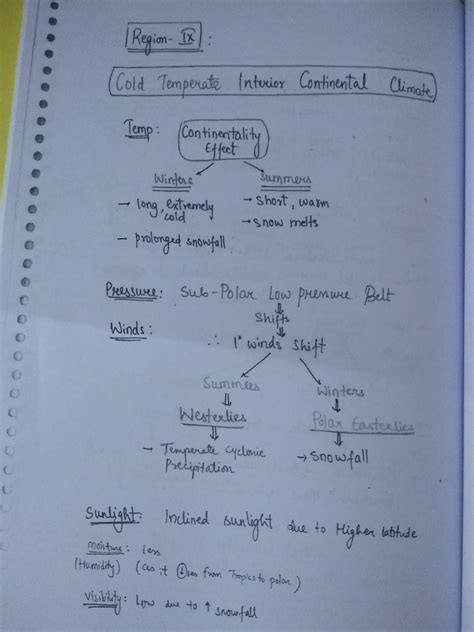 Region- IX :
Cold Temperate Interior Continental Climate
Temp: Continentality
Effect
Winters Summers
→ long, extremely cold → Short, warm
→ snow melts
→ prolonged snowfall
Pressure: Sub-Polar Low pressure Belt
Shifts
Winds: ∴ 1° winds shift
Summers Winters
Westerlies Polar Easterlies
→ Temperate Cyclonic → Snowfall
Precipitation
Sunlight: Inclined sunlight due to Higher latitude
moisture: less
(Humidity) (as it ↓ses from Tropics to polar)
Visibility: Low due to ↑ snowfall